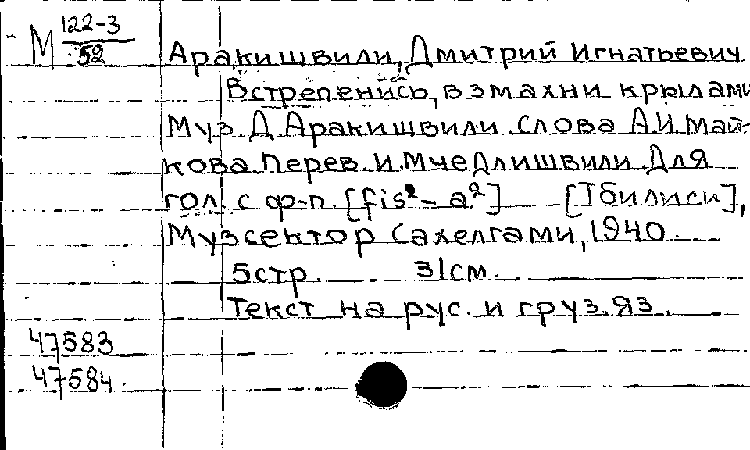 М 122-3/52
Аракишвили, Дмитрий Игнатьевич
Встрепенись, взмахни крылами
Муз. Д. Аракишвили. Слова А.И. Май-
кова. Перев. И. Мчедлишвили. Для
гол. с ф-п. [fis² - a²] [Тбилиси],
Музсектор Сахелгами, 1940.
5 стр. 31 см.
Текст на рус. и груз. яз.
47583
47584